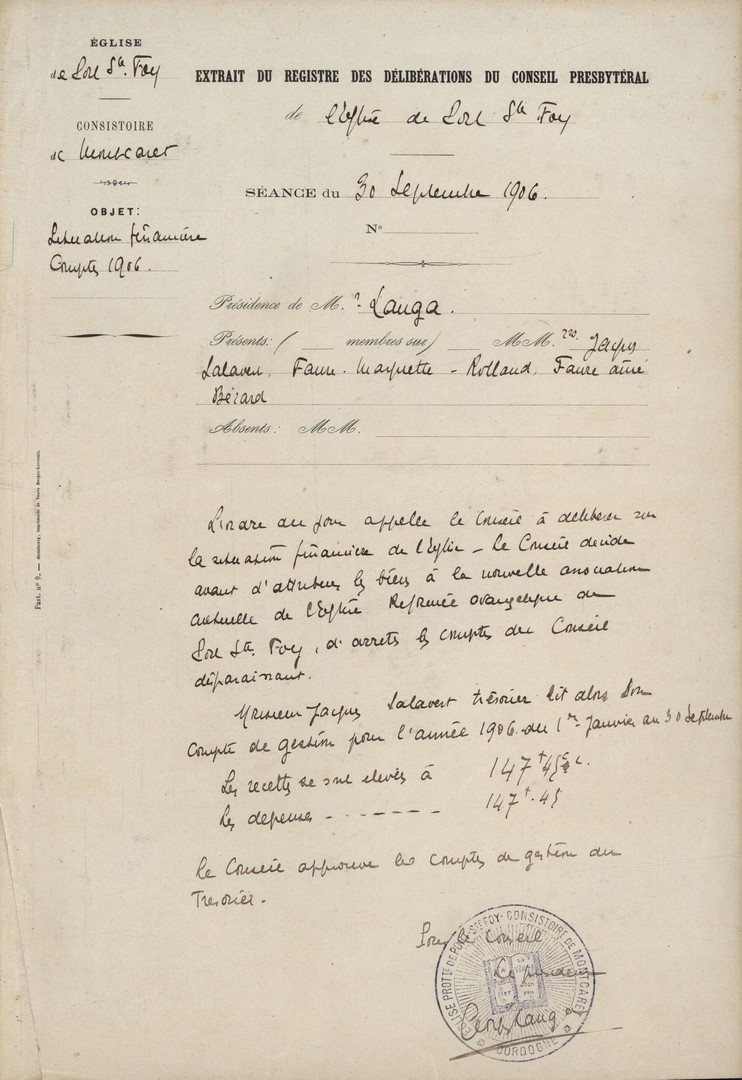 ÉGLISE
de Port Ste. Foy
CONSISTOIRE
de Montcaret
OBJET:
Situation financière
Comptes 1906.
EXTRAIT DU REGISTRE DES DÉLIBÉRATIONS DU CONSEIL PRESBYTÉRAL
de l'Eglise de Port Ste Foy
SÉANCE du 30 Septembre 1906.
N°
Présidence de M. r Langa.
Présents: ( membres sur) MM. rs. Jacques
Salavert, Faure. Marquette - Rolland, Faure ainé
Bérard
Absents: MM.
Fact. n° 9. — Nancy, imprimerie de Veuve Berger-Levrault.
L'ordre du jour appelle le Conseil à délibérer sur
la situation financière de l'Eglise - Le Conseil décide
avant d'attribuer les biens à la nouvelle association
cultuelle de l'Eglise Réformée évangélique de
Port Ste. Foy, d'arrêter les comptes du Conseil
disparaissant.
Monsieur Jacques Salavert trésorier lit alors son
Compte de gestion pour l'année 1906. du 1er Janvier au 30 Septembre
Les recettes se sont élevés à 147 f 45 c.
Les dépenses - - - - - - - 147 f. 45
Le Conseil approuve les comptes de gestion du
Trésorier.
Pour le Conseil
Le président
Langa
EGLISE PROTTE DE PORT-STE FOY - CONSISTOIRE DE MONTCARET
DORDOGNE